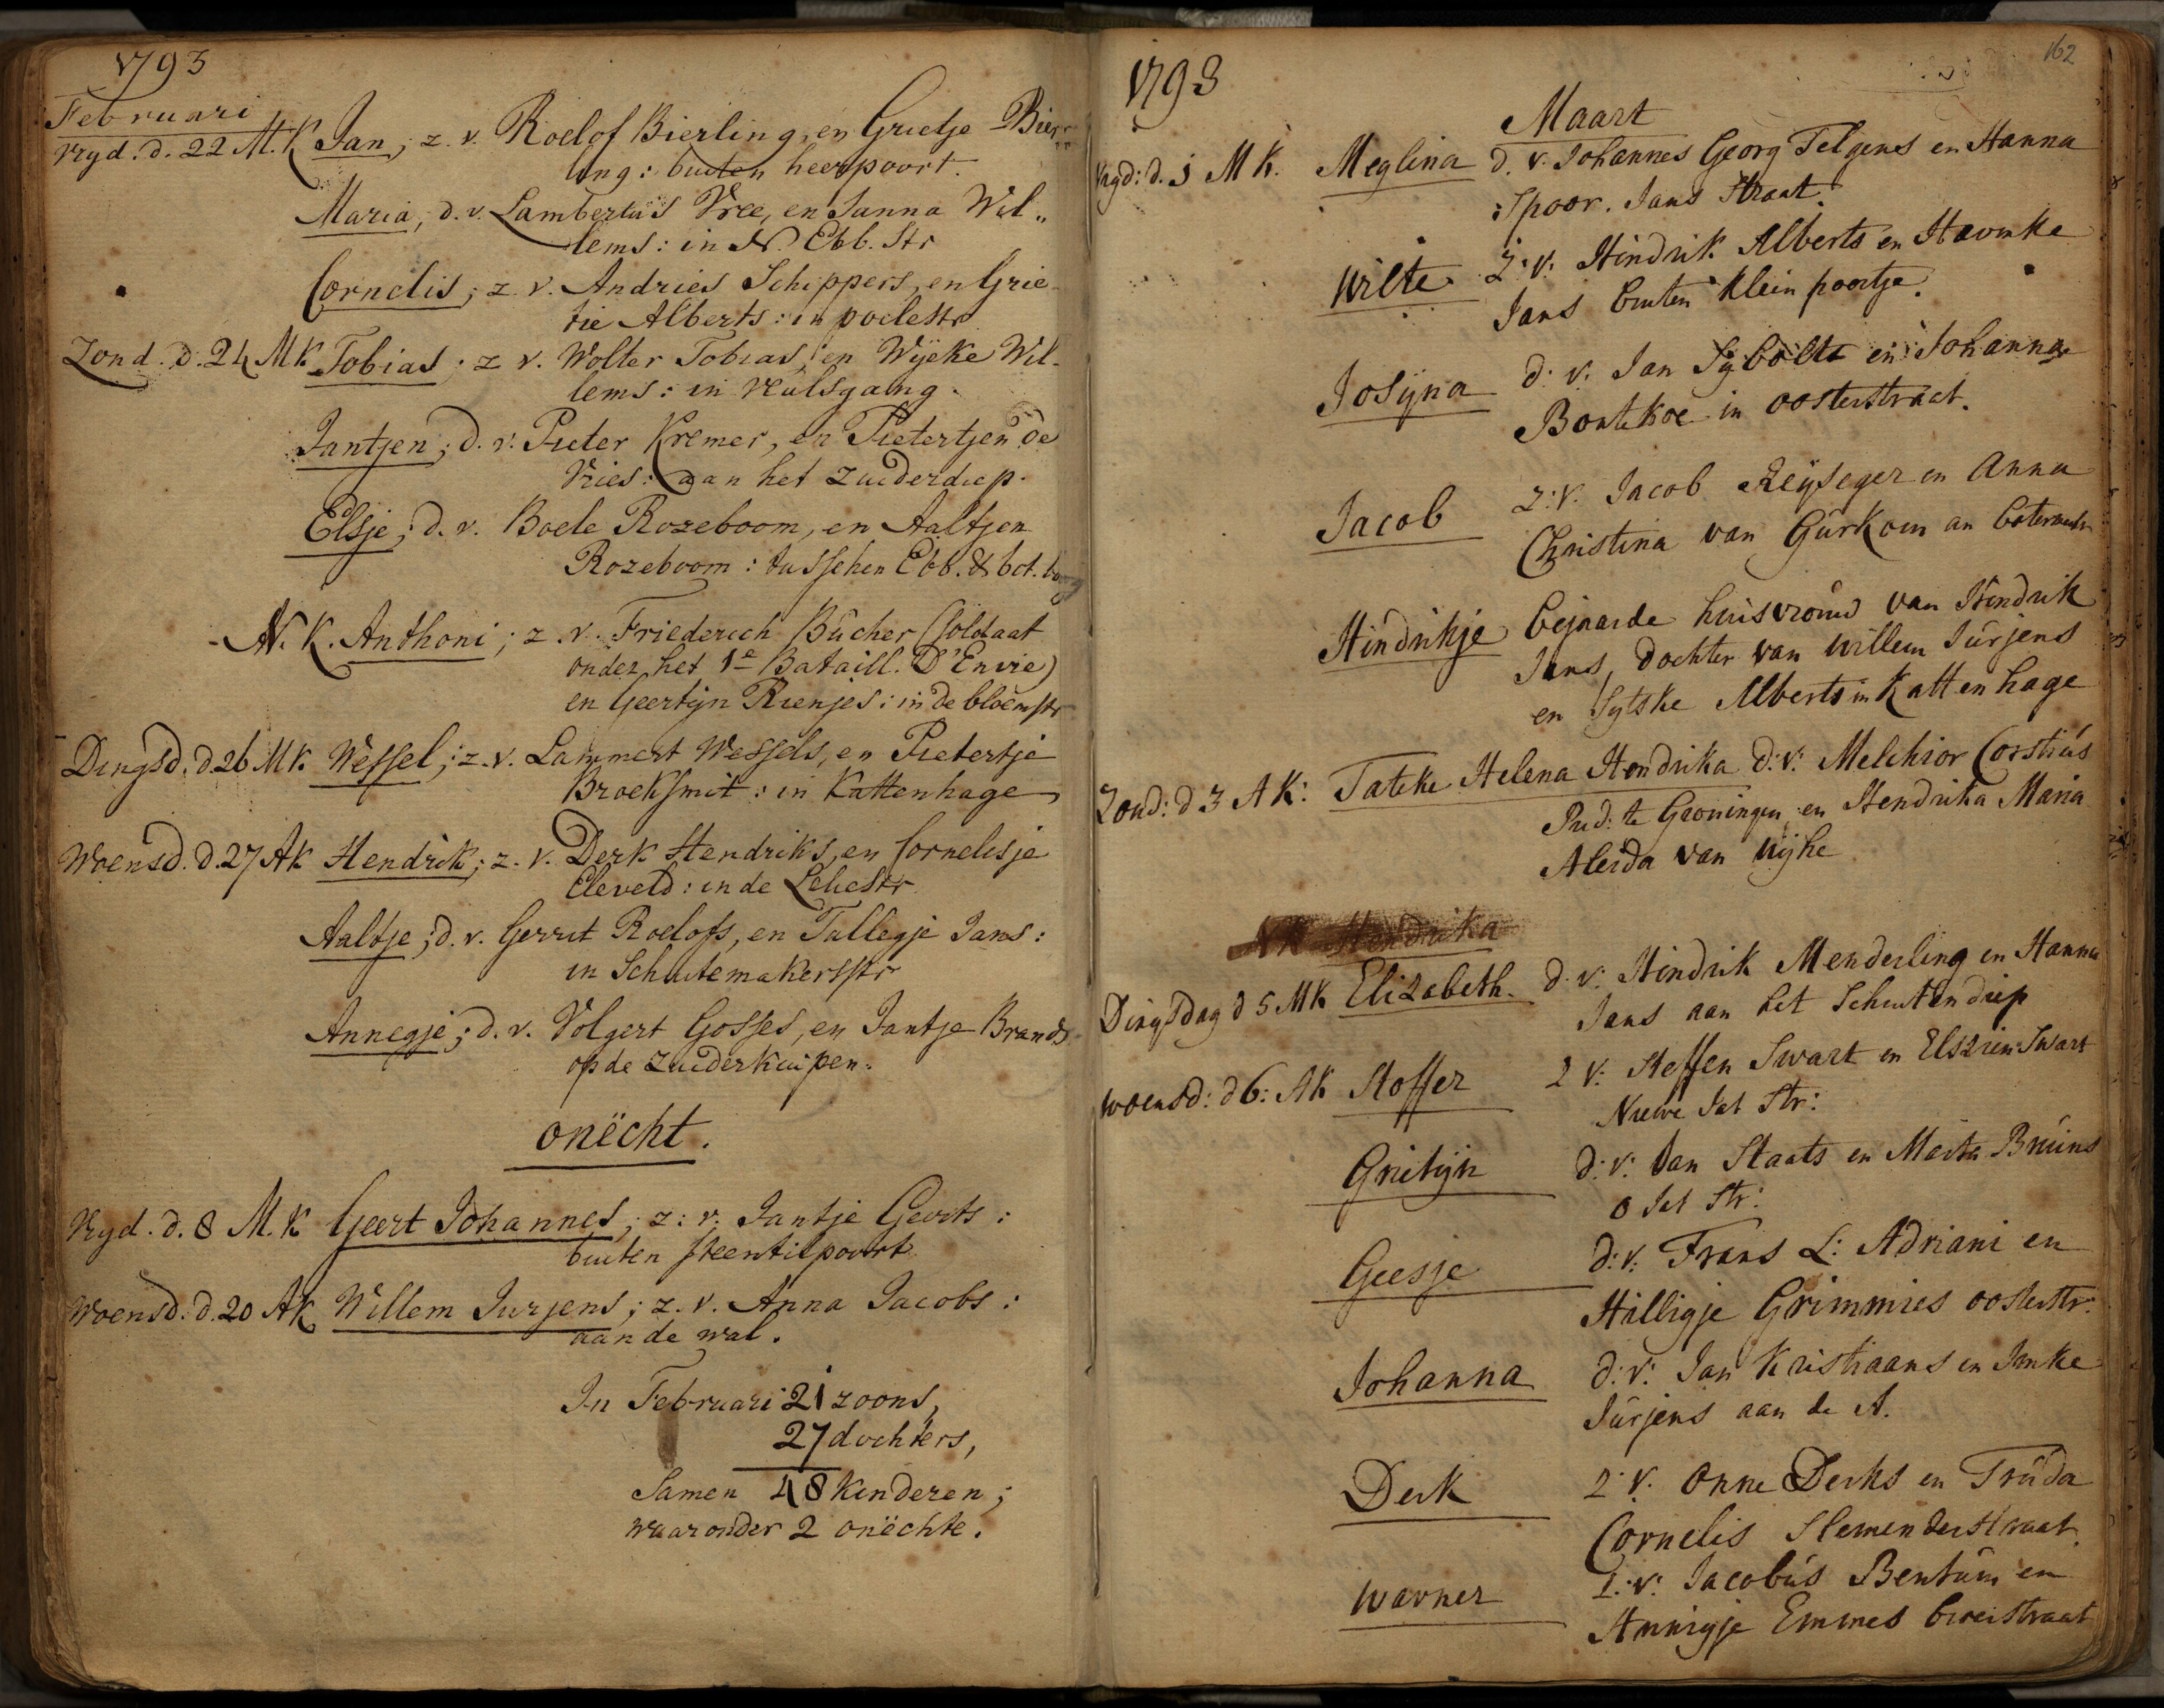 1793
Februari
Vryd. d. 22 M.K Jan; z. v. Roelof Bierling, en Grietje Bier„
ling: buiten heerpoort.
Maria; d. v. Lambertus Vree, en Janna Wil„
lems: in N. Ebb. Str
Cornelis; z. v. Andries Schippers, en Grie-
tie Alberts: in poelestr
Zond. d. 24 MK Tobias; z v. Wolter Tobias, en Wyeke Wil-
lems: in Hulsgang.
Jantjen; d. v. Pieter Kremer, en Pietertjen de
Vries: aan het zuiderdiep.
Elsje; d. v. Boele Rozeboom, en Aaltjen
Rozeboom: tusschen Ebb. & bot.
N. K. Anthoni; z. v. Friederich Bûcher (soldaat
onder het 1e Bataill. D'Envie)
en Geertijn Rienjes: in de bloemstr
Dingsd. d 26 MK Wessel; z. v. Lammert Wessels, en Pietertje
Broeksmit: in Kattenhage
Woensd. d. 27 AK Hendrik; z. v. Derk Hendriks, en Cornelisje
Eleveld: in de Leliestr
Aaltje; d. v. Gerrit Roelofs, en Tallegje Jans:
in Schuitemakersstr
Annegje; d. v. Volgert Gosses, en Jantje Brands
op de zuiderkuipen.
onëcht.
Vryd. d. 8 M. K Geert Johannes; z: v. Jantje Geerts:
buiten steentilpoort
Woensd. d. 20 AK Willem Jurjens; z. v. Anna Jacobs:
aan de wal.
In Februari 21 zoons,
27 dochters,
Samen 48 kinderen;
waaronder 2 onëchte.
162
1793
Maart
Vryd: d. 1 MK. Meglina d. v. Johannes Georg Telgens en Hanna
Spoor. Jans Straat.
Wilte z. v: Hindrik Alberts en
Jans buiten Klein poortje.
Josÿna d: v: Jan Sÿbolts en Johanna
Bontekoe in oosterstraat.
Jacob z: v. Jacob Reÿseger en Anna
Christina van Gûrkom an
Hindrikje bejaarde huisvrouw van Hindrik
Jans, dochter van Willem Jûrjens
en Sytske Alberts in Kattenhage
Zond: d 3 AK: Tateke Helena Hendrika d: v: Melchior Corstiús
Pred: te Groningen en Hendrika Maria
Aleida van Wÿhe
NK Hendrika
Dingsdag d 5 MK Elizabeth. d. v: Hindrik Menderling en Hanna
Jans aan het Schuitendiep
Woensd: d 6: AK Stoffer z v: Steffen Swart en Elszien Swart
Nieuwe Jat Str:
Grietijn d: v: Jan Staats en Marta Brúins
o Jat Str:
Geesje d: v: Frans L: Adriani en
Hilligje Grimmies oosterstr:
Johanna d: v: Jan Kristiaans en Imke
Jûrjens aan de A.
Derk z. v. Onne Derks en Trûda
Cornelis Hemenderstraat
Warner z: v: Jacobús Bentûm en
Annigje Emmes breestraat